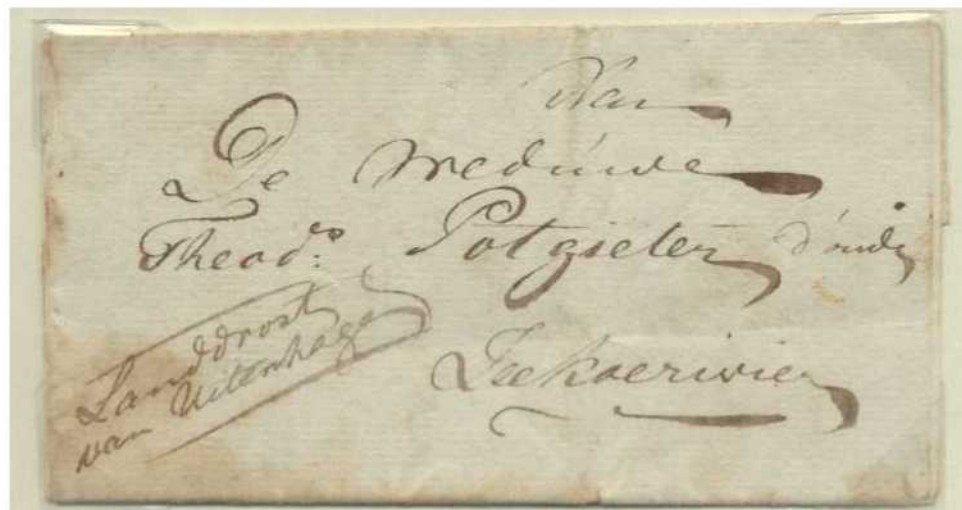 Aan
De Weduwe
Theod:rs Potgieter d'oude
Zeekoerivier
Landdrost
van Uitenhage